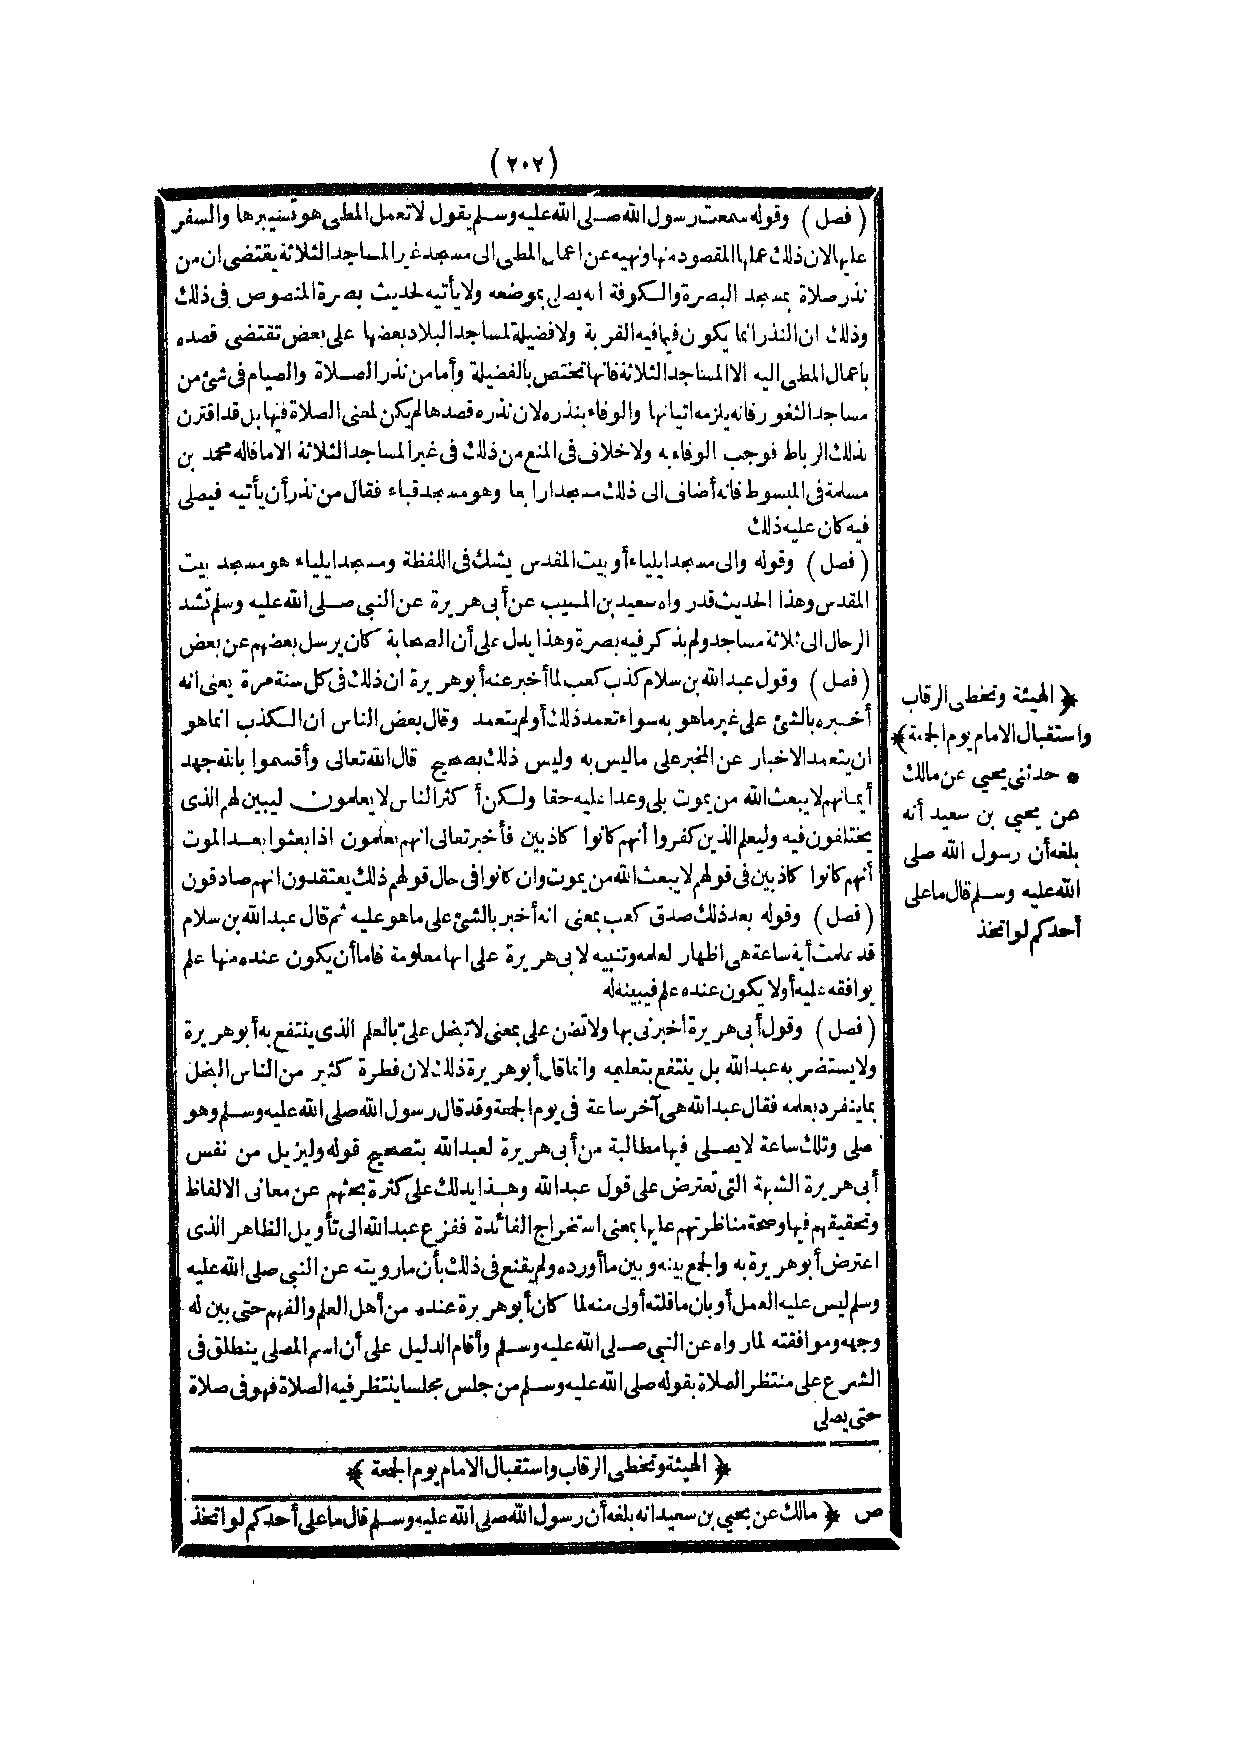 (٢٠٢)
( فصل ) وقوله سمعت رسول الله صلى الله عليه وسلم يقول لا تعمل المطى هو تسييرها والسفر
عليها لان ذلك عملها المقصود منها ونهيه عن اعمال المطى الى مسجد غير المساجد الثلاثة يقتضى ان من
نذر صلاة بمسجد البصرة والكوفة أنه يصلى بموضعه ولا يأتيه لحديث بصرة المنصوص فى ذلك
وذلك ان النذر انما يكون فيما فيه القربة ولا فضيلة لمساجد البلاد بعضها على بعض تقتضى قصده
باعمال المطى اليه الا المساجد الثلاثة فانها تختص بالفضيلة وأما من نذر الصلاة والصيام فى شئ من
مساجد الثغور فانه يلزمه اتيانها والوفاء بنذره لان نذره قصدها لم يكن لمعنى الصلاة فيها بل قد اقترن
بذلك الرباط فوجب الوفاء به ولا خلاف فى المنع من ذلك فى غير المساجد الثلاثة الا ما قاله محمد بن
مسلمة فى المبسوط فانه أضاف الى ذلك مسجدا رابعا وهو مسجد قباء فقال من نذر أن يأتيه فيصلى
فيه كان عليه ذلك
( فصل ) وقوله والى مسجد ايلياء أو بيت المقدس يشك فى اللفظة ومسجد ايلياء هو مسجد بيت
المقدس وهذا الحديث قد رواه سعيد بن المسيب عن أبى هريرة عن النبى صلى الله عليه وسلم تشد
الرحال الى ثلاثة مساجد ولم يذكر فيه بصرة وهذا يدل على أن الصحابة كان يرسل بعضهم عن بعض
( فصل ) وقول عبد الله بن سلام كذب كعب لما أخبر عنه أبو هريرة ان ذلك فى كل سنة مرة يعنى انه
أخبره بالشئ على غير ما هو به سواء تعمد ذلك أو لم يتعمد وقال بعض الناس ان الكذب انما هو
ان يتعمد الاخبار عن المخبر على ما ليس به وليس ذلك بصحيح قال الله تعالى وأقسموا بالله جهد
أيمانهم لا يبعث الله من يموت بلى وعدا عليه حقا ولكن أكثر الناس لا يعلمون ليبين لهم الذى
يختلفون فيه وليعلم الذين كفروا أنهم كانوا كاذبين فأخبر تعالى انهم يعلمون اذا بعثوا بعد الموت
أنهم كانوا كاذبين فى قولهم لا يبعث الله من يموت وان كانوا فى حال قولهم ذلك يعتقدون انهم صادقون
( فصل ) وقوله بعد ذلك صدق كعب بمعنى انه أخبر بالشئ على ما هو عليه ثم قال عبد الله بن سلام
قد علمت أية ساعة هى اظهار لعلمه وتنبيه لابى هريرة على انها معلومة فاما أن يكون عنده منها علم
يوافقه عليه أو لا يكون عنده علم فيبينه له
( فصل ) وقول أبى هريرة أخبرنى بها ولا تضن على بمعنى لا تبخل علىّ بالعلم الذى ينتفع به أبو هريرة
ولا يستضر به عبد الله بل ينتفع بتعليمه وانما قال أبو هريرة ذلك لان فطرة كثير من الناس البخل
بما ينفرد بعلمه فقال عبد الله هى آخر ساعة فى يوم الجمعة وقد قال رسول الله صلى الله عليه وسلم وهو
صلى وتلك ساعة لا يصلى فيها مطالبة من أبى هريرة لعبد الله بتصحيح قوله وليزيل من نفس
أبى هريرة الشبهة التى تعترض على قول عبد الله وهذا يدلك على كثرة بحثهم عن معانى الالفاظ
وتحقيقهم فيها وصحة مناظرتهم عليها بمعنى استخراج الفائدة ففزع عبد الله الى تأويل الظاهر الذى
اعترض أبو هريرة به والجمع بينه وبين ما أورده ولم يقنع فى ذلك بأن ما رويته عن النبى صلى الله عليه
وسلم ليس عليه العمل أو بان ما قلته أولى منه لما كان أبو هريرة عنده من أهل العلم والفهم حتى بين له
وجهه وموافقته لما رواه عن النبى صلى الله عليه وسلم وأقام الدليل على أن اسم المصلى ينطلق فى
الشرع على منتظر الصلاة بقوله صلى الله عليه وسلم من جلس مجلسا ينتظر فيه الصلاة فهو فى صلاة
حتى يصلى
﴿ الهيئة وتخطى الرقاب واستقبال الامام يوم الجمعة ﴾
ص ﴿ مالك عن يحيى بن سعيد انه بلغه أن رسول الله صلى الله عليه وسلم قال ما على أحدكم لو اتخذ
﴿ الهيئة وتخطى الرقاب
واستقبال الامام يوم الجمعة ﴾
* حدثنى يحيى عن مالك
عن يحيى بن سعيد أنه
بلغه أن رسول الله صلى
الله عليه وسلم قال ما على
أحدكم لو اتخذ